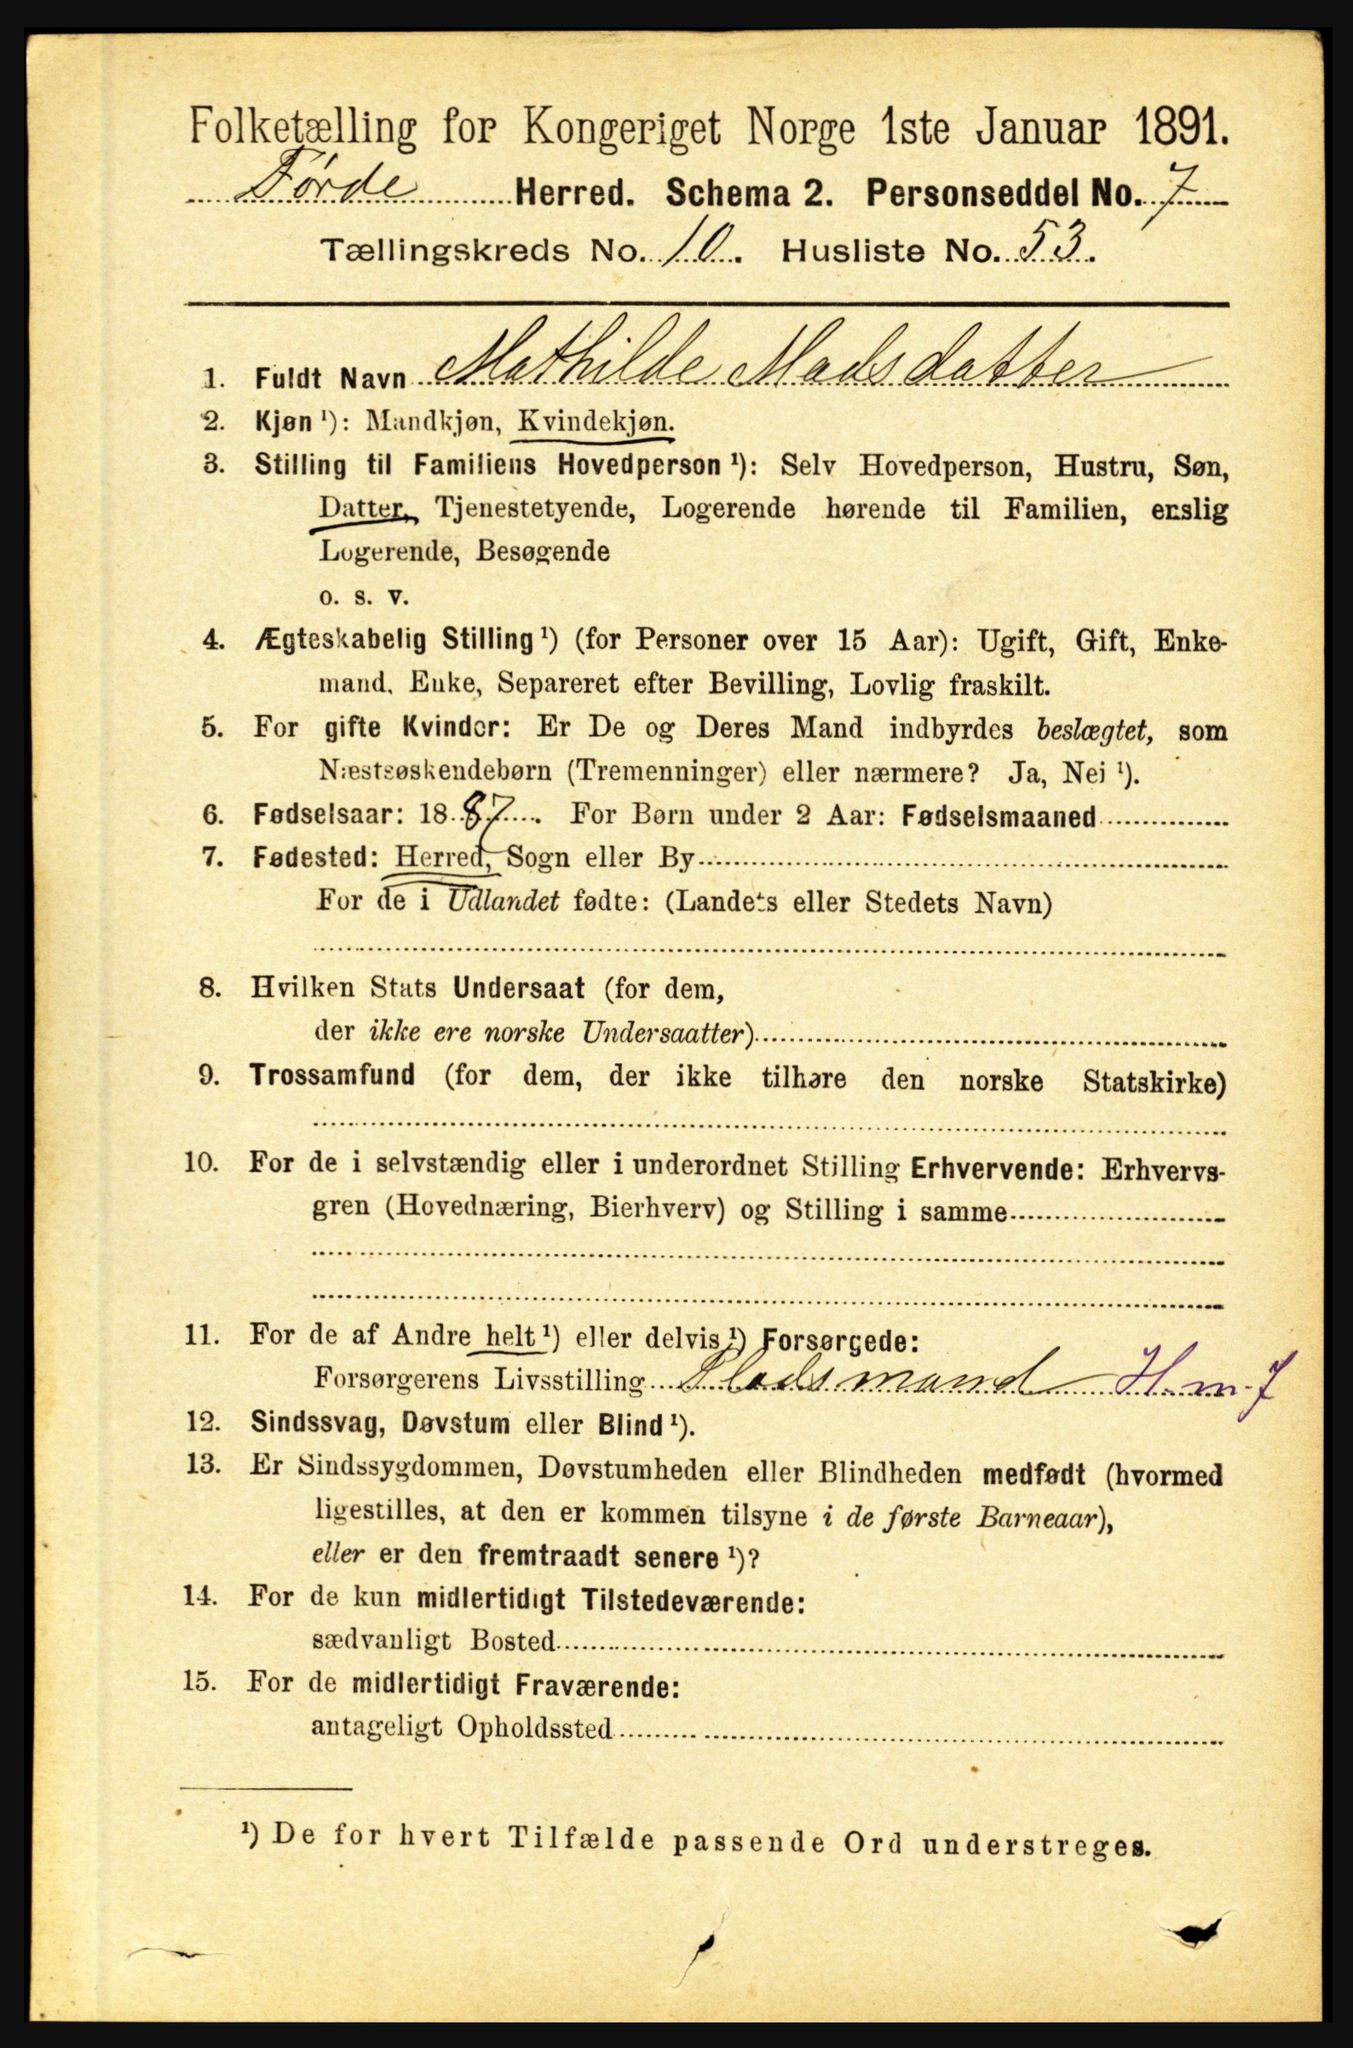 Folketælling for Kongeriget Norge 1ste Januar 1891.
Førde Herred. Schema 2. Personseddel No. 7
Tællingskreds No. 10. Husliste No. 53.
1. Fuldt Navn Mathilde Madsdatter
2. Kjøn ¹): Mandkjøn, Kvindekjøn.
3. Stilling til Familiens Hovedperson ¹): Selv Hovedperson, Hustru, Søn,
Datter, Tjenestetyende, Logerende hørende til Familien, enslig
Logerende, Besøgende
o. s. v.
4. Ægteskabelig Stilling ¹) (for Personer over 15 Aar): Ugift, Gift, Enke-
mand, Enke, Separeret efter Bevilling, Lovlig fraskilt.
5. For gifte Kvinder: Er De og Deres Mand indbyrdes beslægtet, som
Næstsøskendebørn (Tremenninger) eller nærmere? Ja, Nei ¹).
6. Fødselsaar: 1887. For Børn under 2 Aar: Fødselsmaaned
7. Fødested: Herred, Sogn eller By
For de i Udlandet fødte: (Landets eller Stedets Navn)
8. Hvilken Stats Undersaat (for dem,
der ikke ere norske Undersaatter)
9. Trossamfund (for dem, der ikke tilhøre den norske Statskirke)
10. For de i selvstændig eller i underordnet Stilling Erhvervende: Erhvervs-
gren (Hovednæring, Bierhverv) og Stilling i samme
11. For de af Andre helt ¹) eller delvis ¹) Forsørgede:
Forsørgerens Livsstilling Pladsmand H.m.7
12. Sindssvag, Døvstum eller Blind ¹).
13. Er Sindssygdommen, Døvstumheden eller Blindheden medfødt (hvormed
ligestilles, at den er kommen tilsyne i de første Barneaar),
eller er den fremtraadt senere ¹)?
14. For de kun midlertidigt Tilstedeværende:
sædvanligt Bosted
15. For de midlertidigt Fraværende:
antageligt Opholdssted
¹) De for hvert Tilfælde passende Ord understreges.